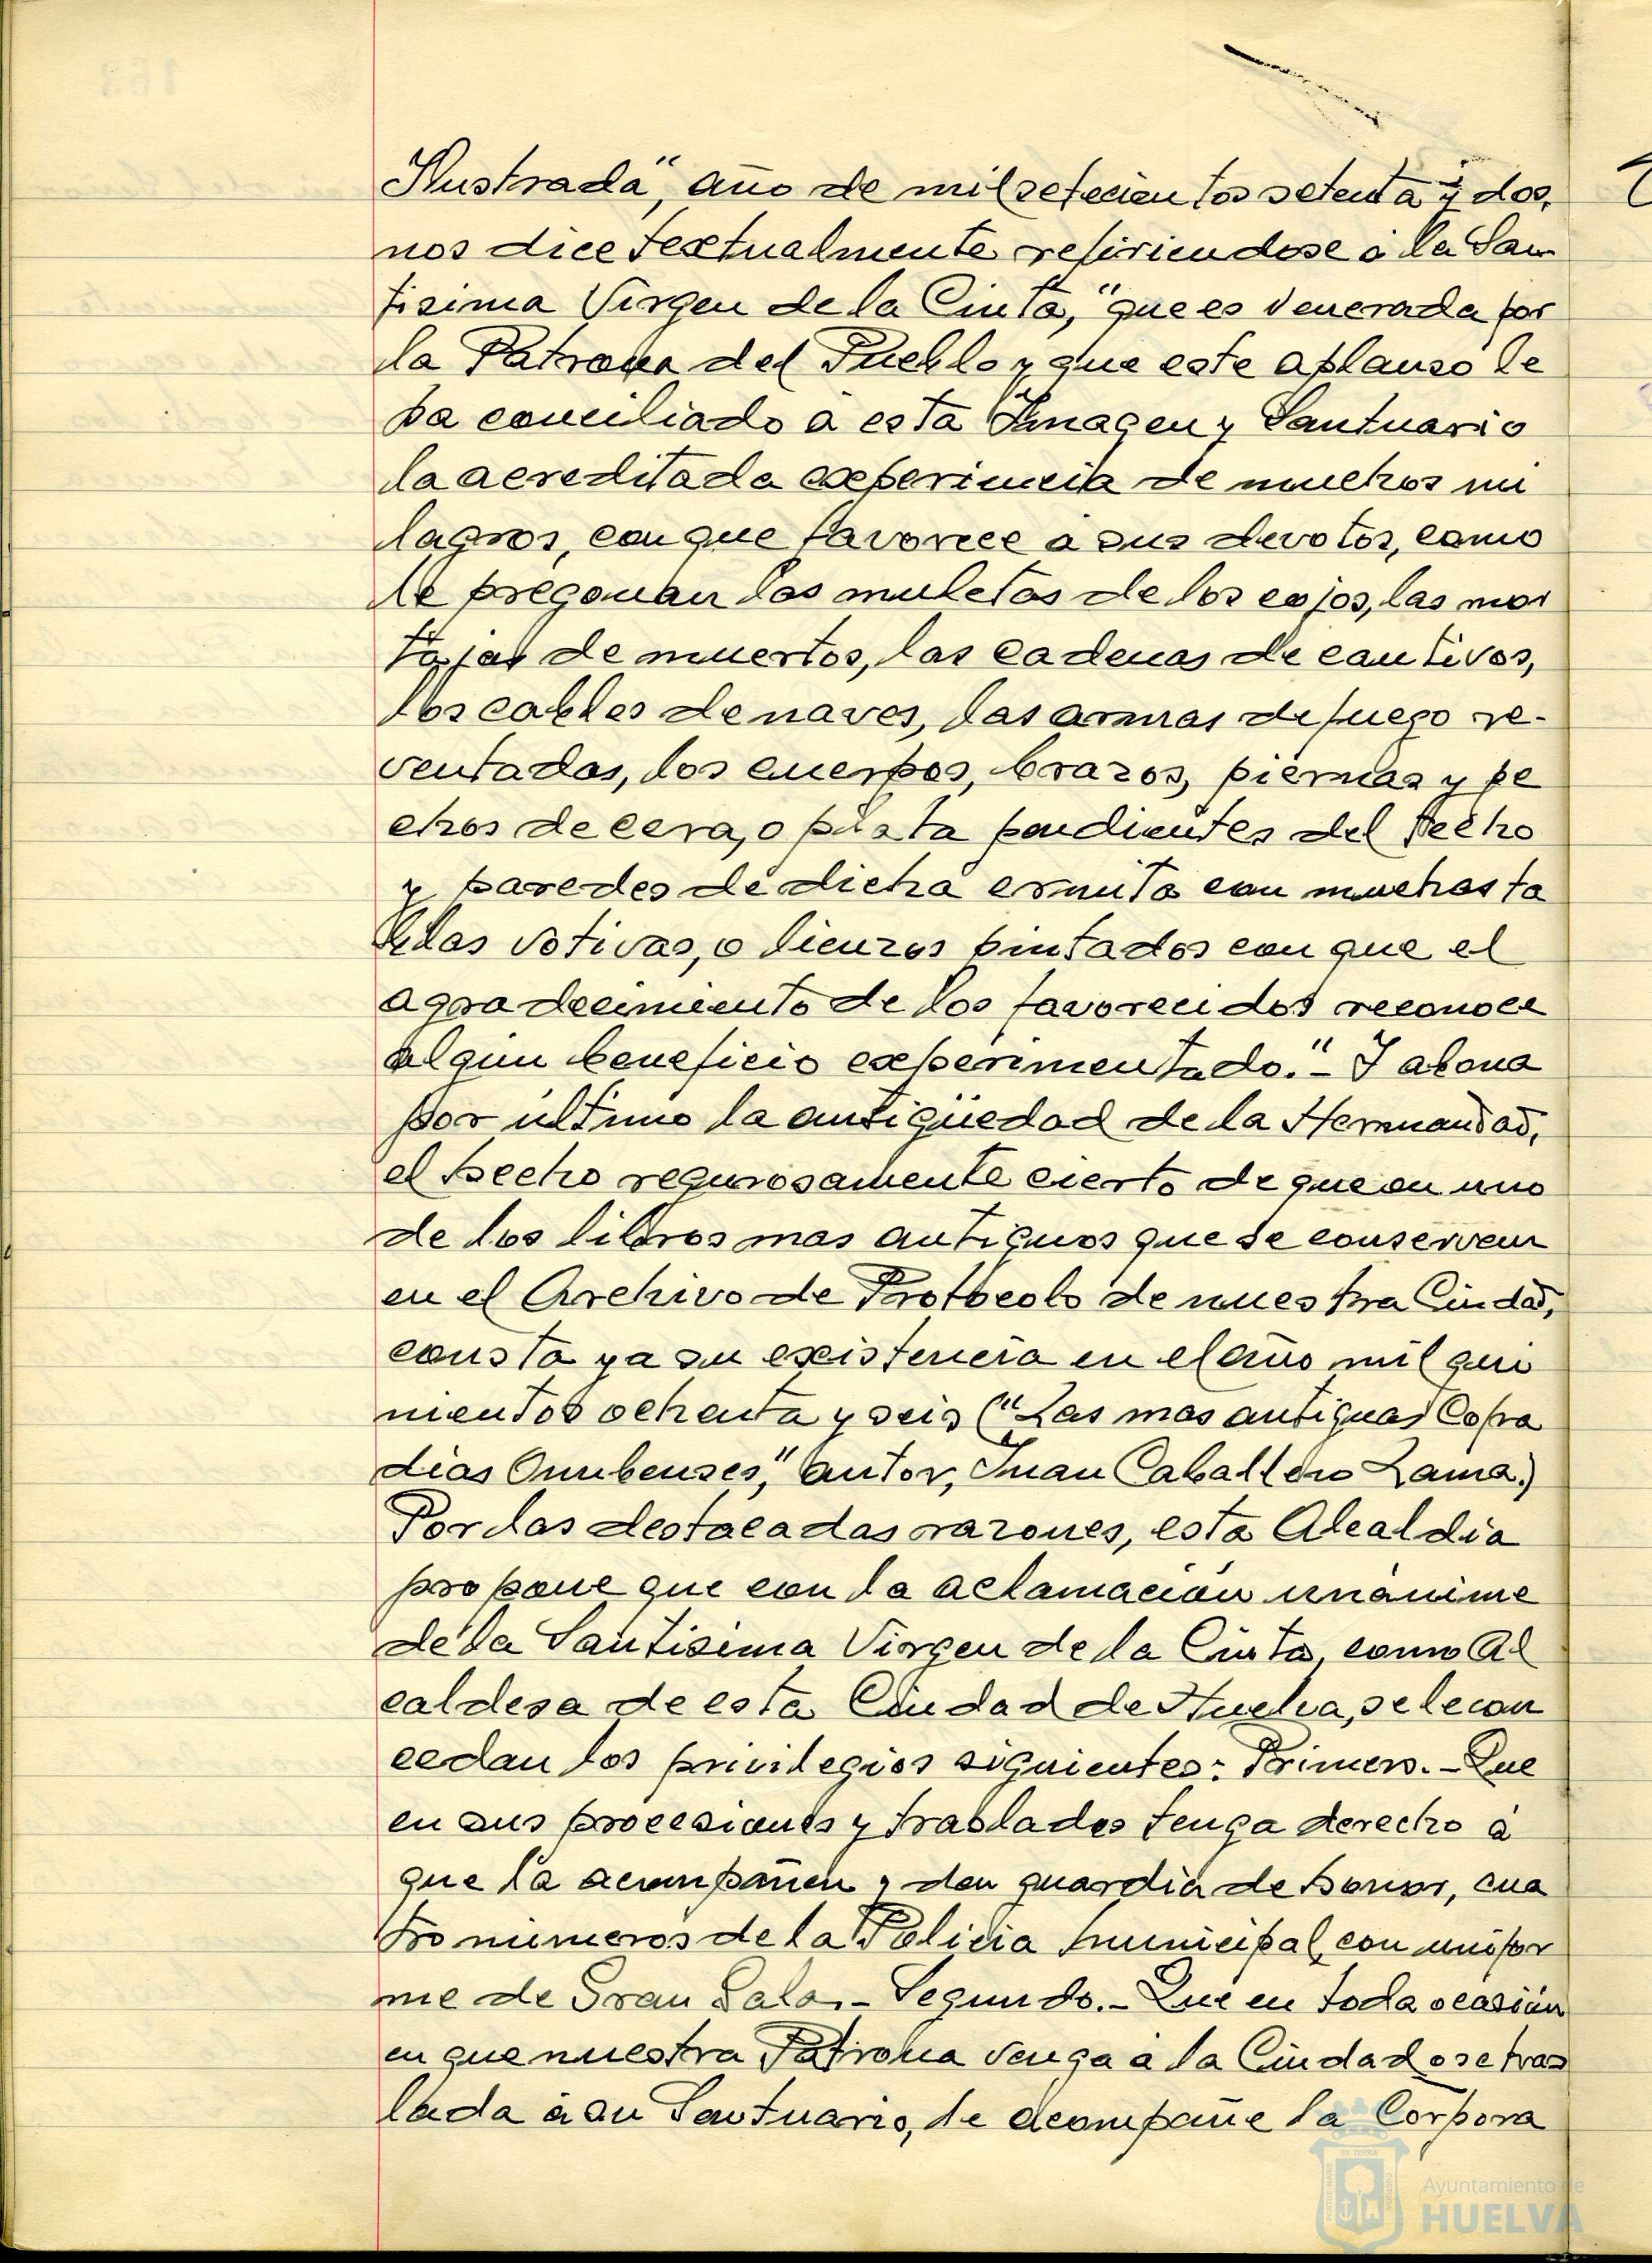 Ilustrada", año de mil setecientos setenta y dos,
nos dice textualmente refiriendose a la San
tisima Virgen de la Cinta, "que es venerada por
la Patrona del Pueblo y que este aplauso le
ha conciliado a esta Imagen y Santuario
la acreditada experiencia de muchos mi
lagros, con que favorece a sus devotos, como
le pregonan las muletas de los cojos, las mor
tajas de muertos, las cadenas de cautivos,
los cables de naves, las armas de fuego re-
ventadas, los cuerpos, brazos, piernas y pe
chos de cera, o plata pendientes del techo
y paredes de dicha ermita con muchas ta
blas votivas, o lienzos pintados con que el
agradecimiento de los favorecidos reconoce
algun beneficio experimentado."- Y abona
por último la antigüedad de la Hermandad,
el hecho regurosamente cierto de que en uno
de los libros mas antiguos que se conserven
en el Archivo de Protocolo de nuestra Ciudad,
consta ya su existencia en el año mil qui
nientos ochenta y seis ("Las mas antiguas Cofra
dias Onubenses," autor, Juan Caballero Lama.)
Por las destacadas razones, esta Alcaldia
propone que con la aclamación unánime
de la Santisima Virgen de la Cinta, como Al
caldesa de esta Ciudad de Huelva, se le con
cedan los privilegios siguientes: Primero.- Que
en sus procesiones y traslados tenga derecho á
que la acompañen y den guardia de honor, cua
tro números de la Policia Municipal, con unifor
me de Gran Gala.- Segundo.- Que en toda ocasión
en que nuestra Patrona venga a la Ciudad o se tras
lada á su Santuario, le acompañe la Corpora
Ayuntamiento de
HUELVA